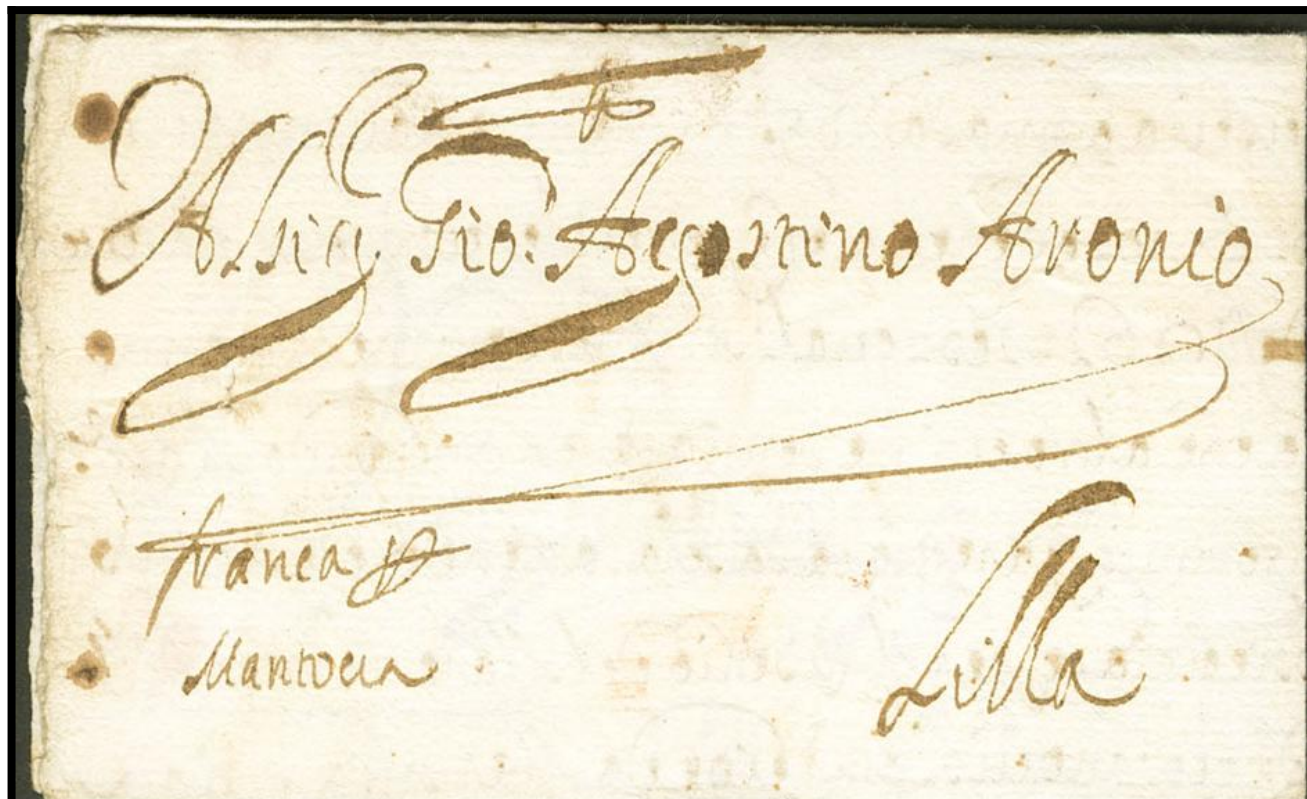 Al Sig Gio: Agostino Aronio
franca p
Mantoua
Lilla